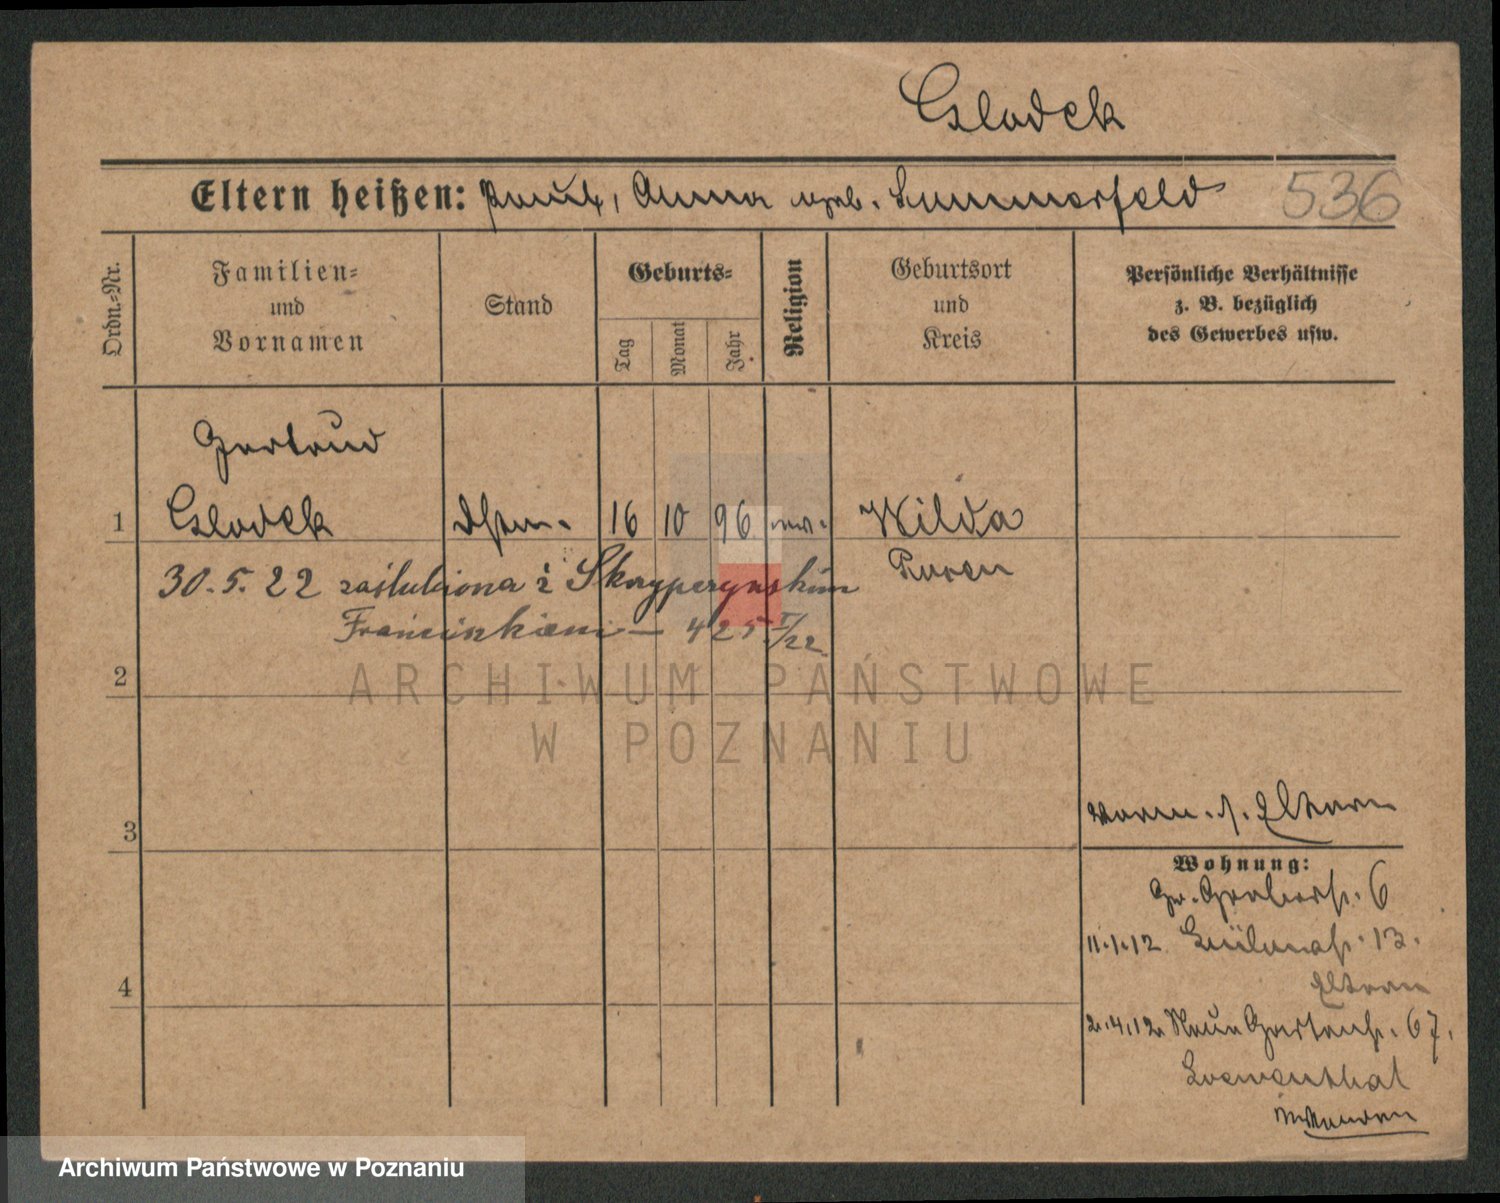 Glodek
Eltern heißen: Paul, Anna geb. Summerfeld 536
Ordn.-Nr.
Familien-
und
Vornamen
Stand
Geburts-
Tag
Monat
Jahr
Religion
Geburtsort
und
Kreis
Persönliche Verhältnisse
z. B. bezüglich
des Gewerbes usw.
Gertrud
1 Glodek 16 10 96 ev. Wilda
Posen
30.5.22 zaślubiona z Skrzypczyńskim
Franciszkiem — 425 I/22
2
ARCHIWUM PAŃSTWOWE
W POZNANIU
3
4
Eltern
Wohnung:
Gr. Gerberstr. 6
11.1.12 13.
Eltern
2.4.12 Neue Gartenstr. 67.
Loewenthal
Archiwum Państwowe w Poznaniu